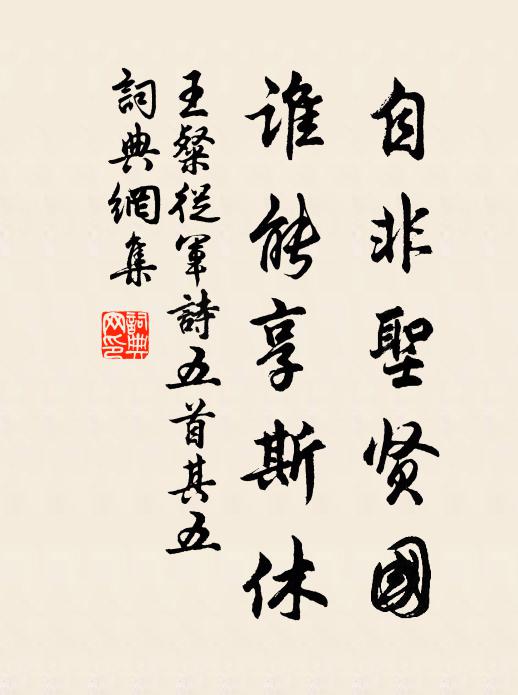 自非聖贤國
谁能享斯休
王粲從軍詩五首其五
詞典網集
詞典网印